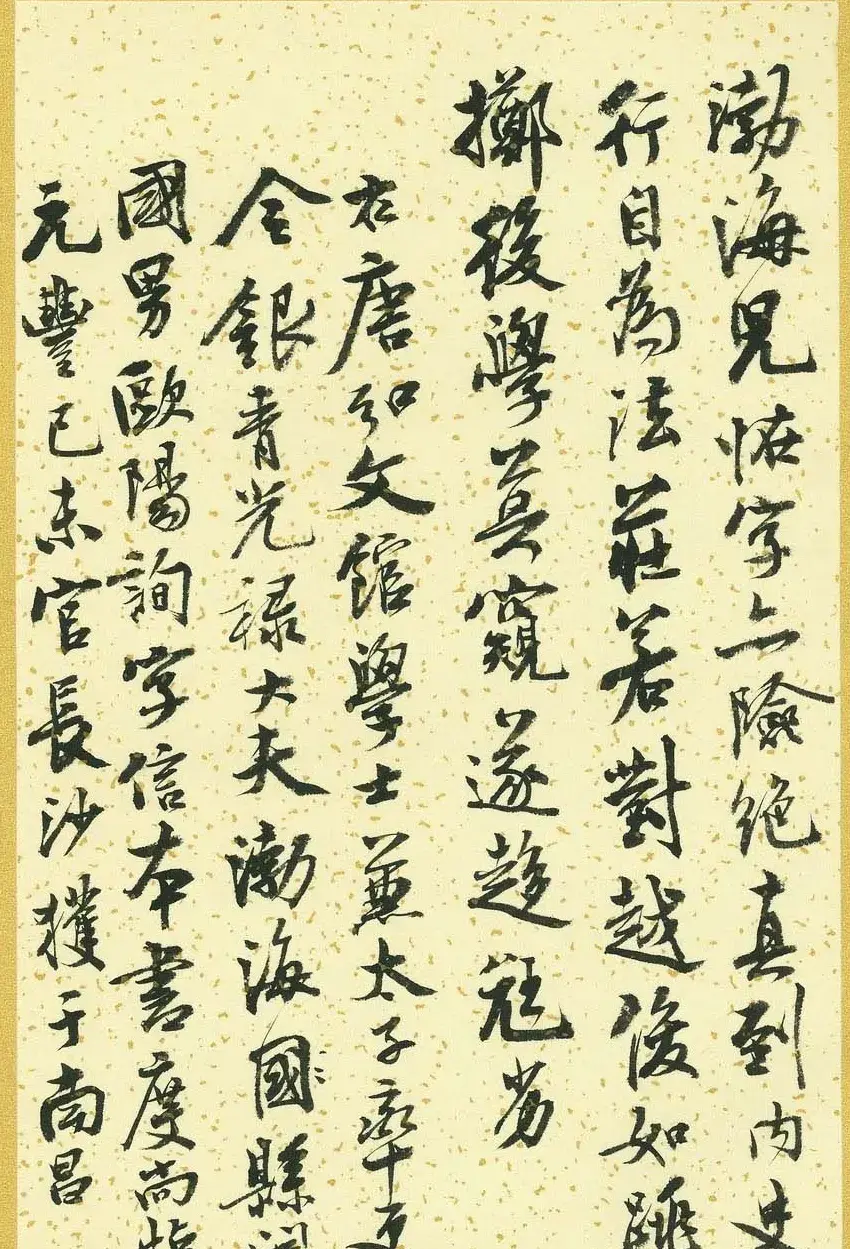 渤海光怪字亦險絕真到內史
行自為法莊若對越俊如跳
擲後學莫窺遂趍尪劣
右唐弘文館學士兼太子率更
令銀青光祿大夫渤海國縣開
國男歐陽詢字信本書度尚帖
元豐己未官長沙獲于南昌